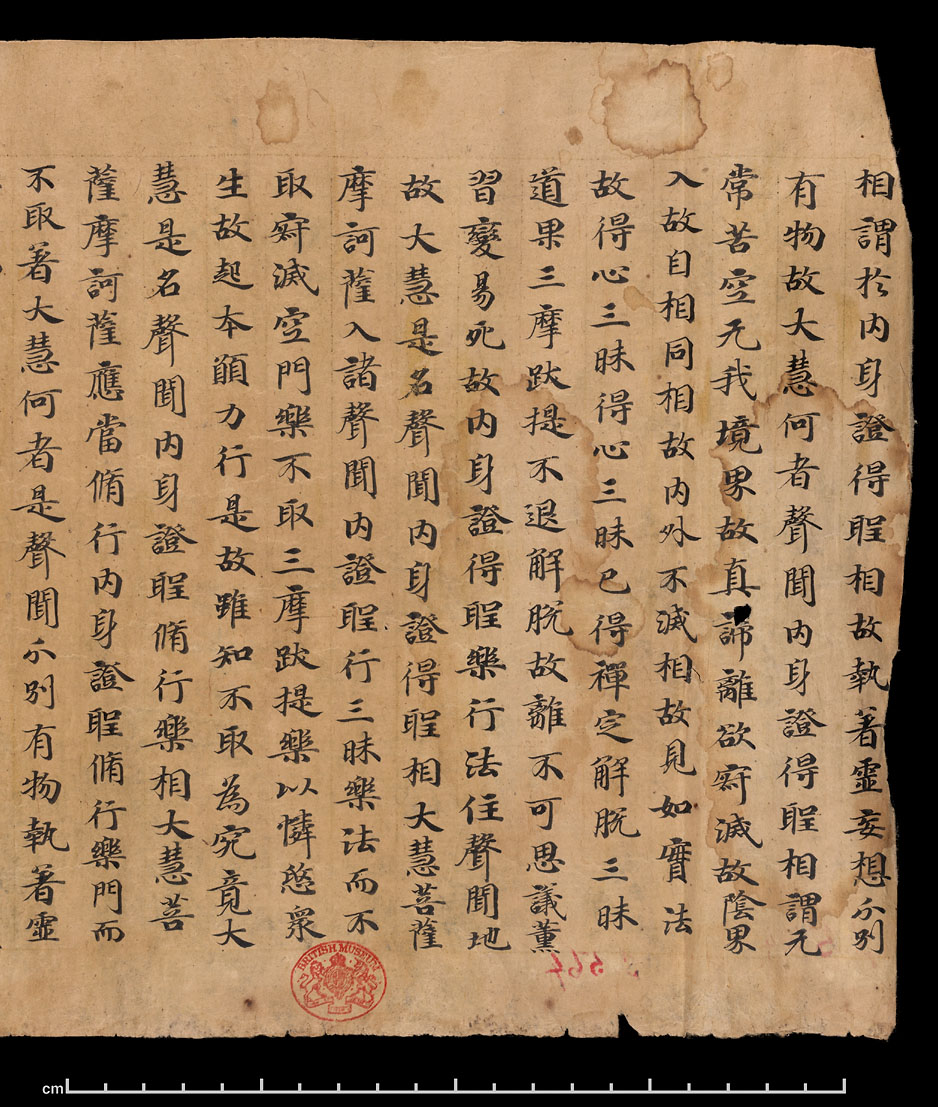 相謂於内身證得聖相故執著虛妄想分別
有物故大慧何者聲聞内身證得聖相謂无
常苦空无我境界故真諦離欲寂滅故陰界
入故自相同相故内外不滅相故見如實法
故得心三昧得心三昧已得禪定解脫三昧
道果三摩跋提不退解脫故離不可思議薰
習變易死故内身證得聖樂行法住聲聞地
故大慧是名聲聞内身證得聖相大慧菩薩
摩訶薩入諸聲聞内證聖行三昧樂法而不
取寂滅空門樂不取三摩跋提樂以憐愍衆
生故起本願力行是故雖知不取為究竟大
慧是名聲聞内身證聖脩行樂相大慧菩
薩摩訶薩應當脩行内身證聖脩行樂門而
不取著大慧何者是聲聞分別有物執著虛
BRITISH MUSEUM
cm